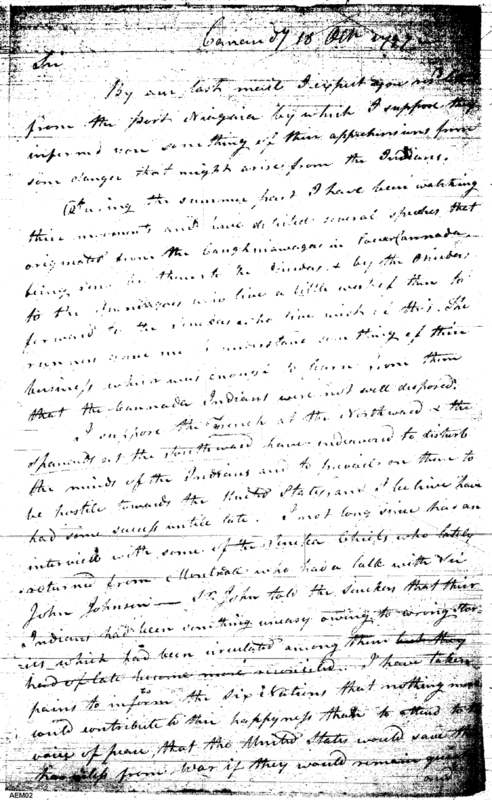 Canandy 18 Oct 1797
Sir
By our last mail I expect you
from the Port Niagara by which I suppose they
informed you something of their apprehensions from
som danger that might arise from the Indians.
During the summer past I have been watching
their movements and have detected several speeches that
originated from the Caughnawagas in Lower Cannada,
being sent by them to the Oneidas & by the Oneidas
to the Onondagoes who live a little west of them to
forward to the Senekas who live west of this. The
runners came me I understand something of their
business which was enough to learn from them
that the Cannada Indians were not well disposed.
I suppose the French at the Northward & the
Spanards at the Southward have endeavored to disturb
the minds of the Indians and to prevail on them to
be hostile towards the United States, and I beleive have
had some success untill late. I not long since has an
interview with some of the Seneka Chiefs who lately
returned from Montreal who had a talk with Sir
John Johnson — Sr. John told the Senekas that their
Indians had been something uneasy owing to wrong stor-
ies which had been circulated among them but they
had of late become more reconciled. I have taken
pains to inform the Six Nations that nothing more
could contribute to their happyness than to attend to the
voice of peace, that the United States would save them
harmless from War if they would remain quiet
and
AEM02